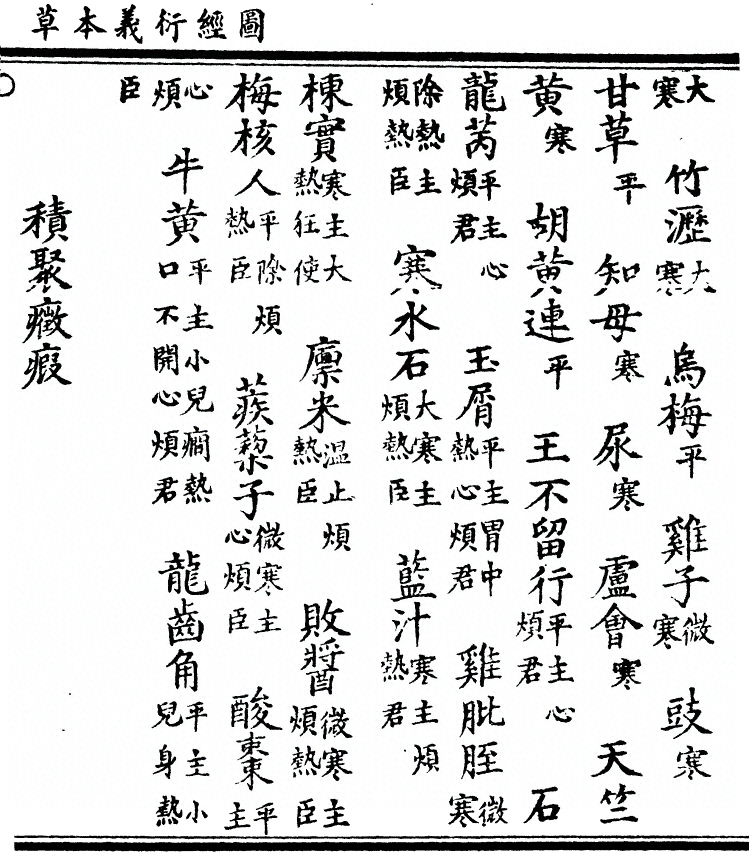 圖經衍義本草
大寒 竹瀝大寒 烏梅平 雞子微寒 豉寒
甘草平 知母寒 尿寒 盧會寒 天竺
黃寒 胡黃連平 王不留行平主心煩君 石
龍芮平主心煩君 玉屑平主胃中熱心煩君 雞肶胵微寒
除熱主煩熱臣 寒水石大寒主煩熱臣 藍汁寒主煩熱君
楝實寒主大熱狂使 廩米溫止煩熱臣 敗醬微寒主煩熱臣
梅核人平除煩熱臣 蒺蔾子微寒主心煩臣 酸棗平主
心煩臣 牛黃平主小兒癇熱口不開心煩君 龍齒角平主小兒身熱
積聚癥瘕